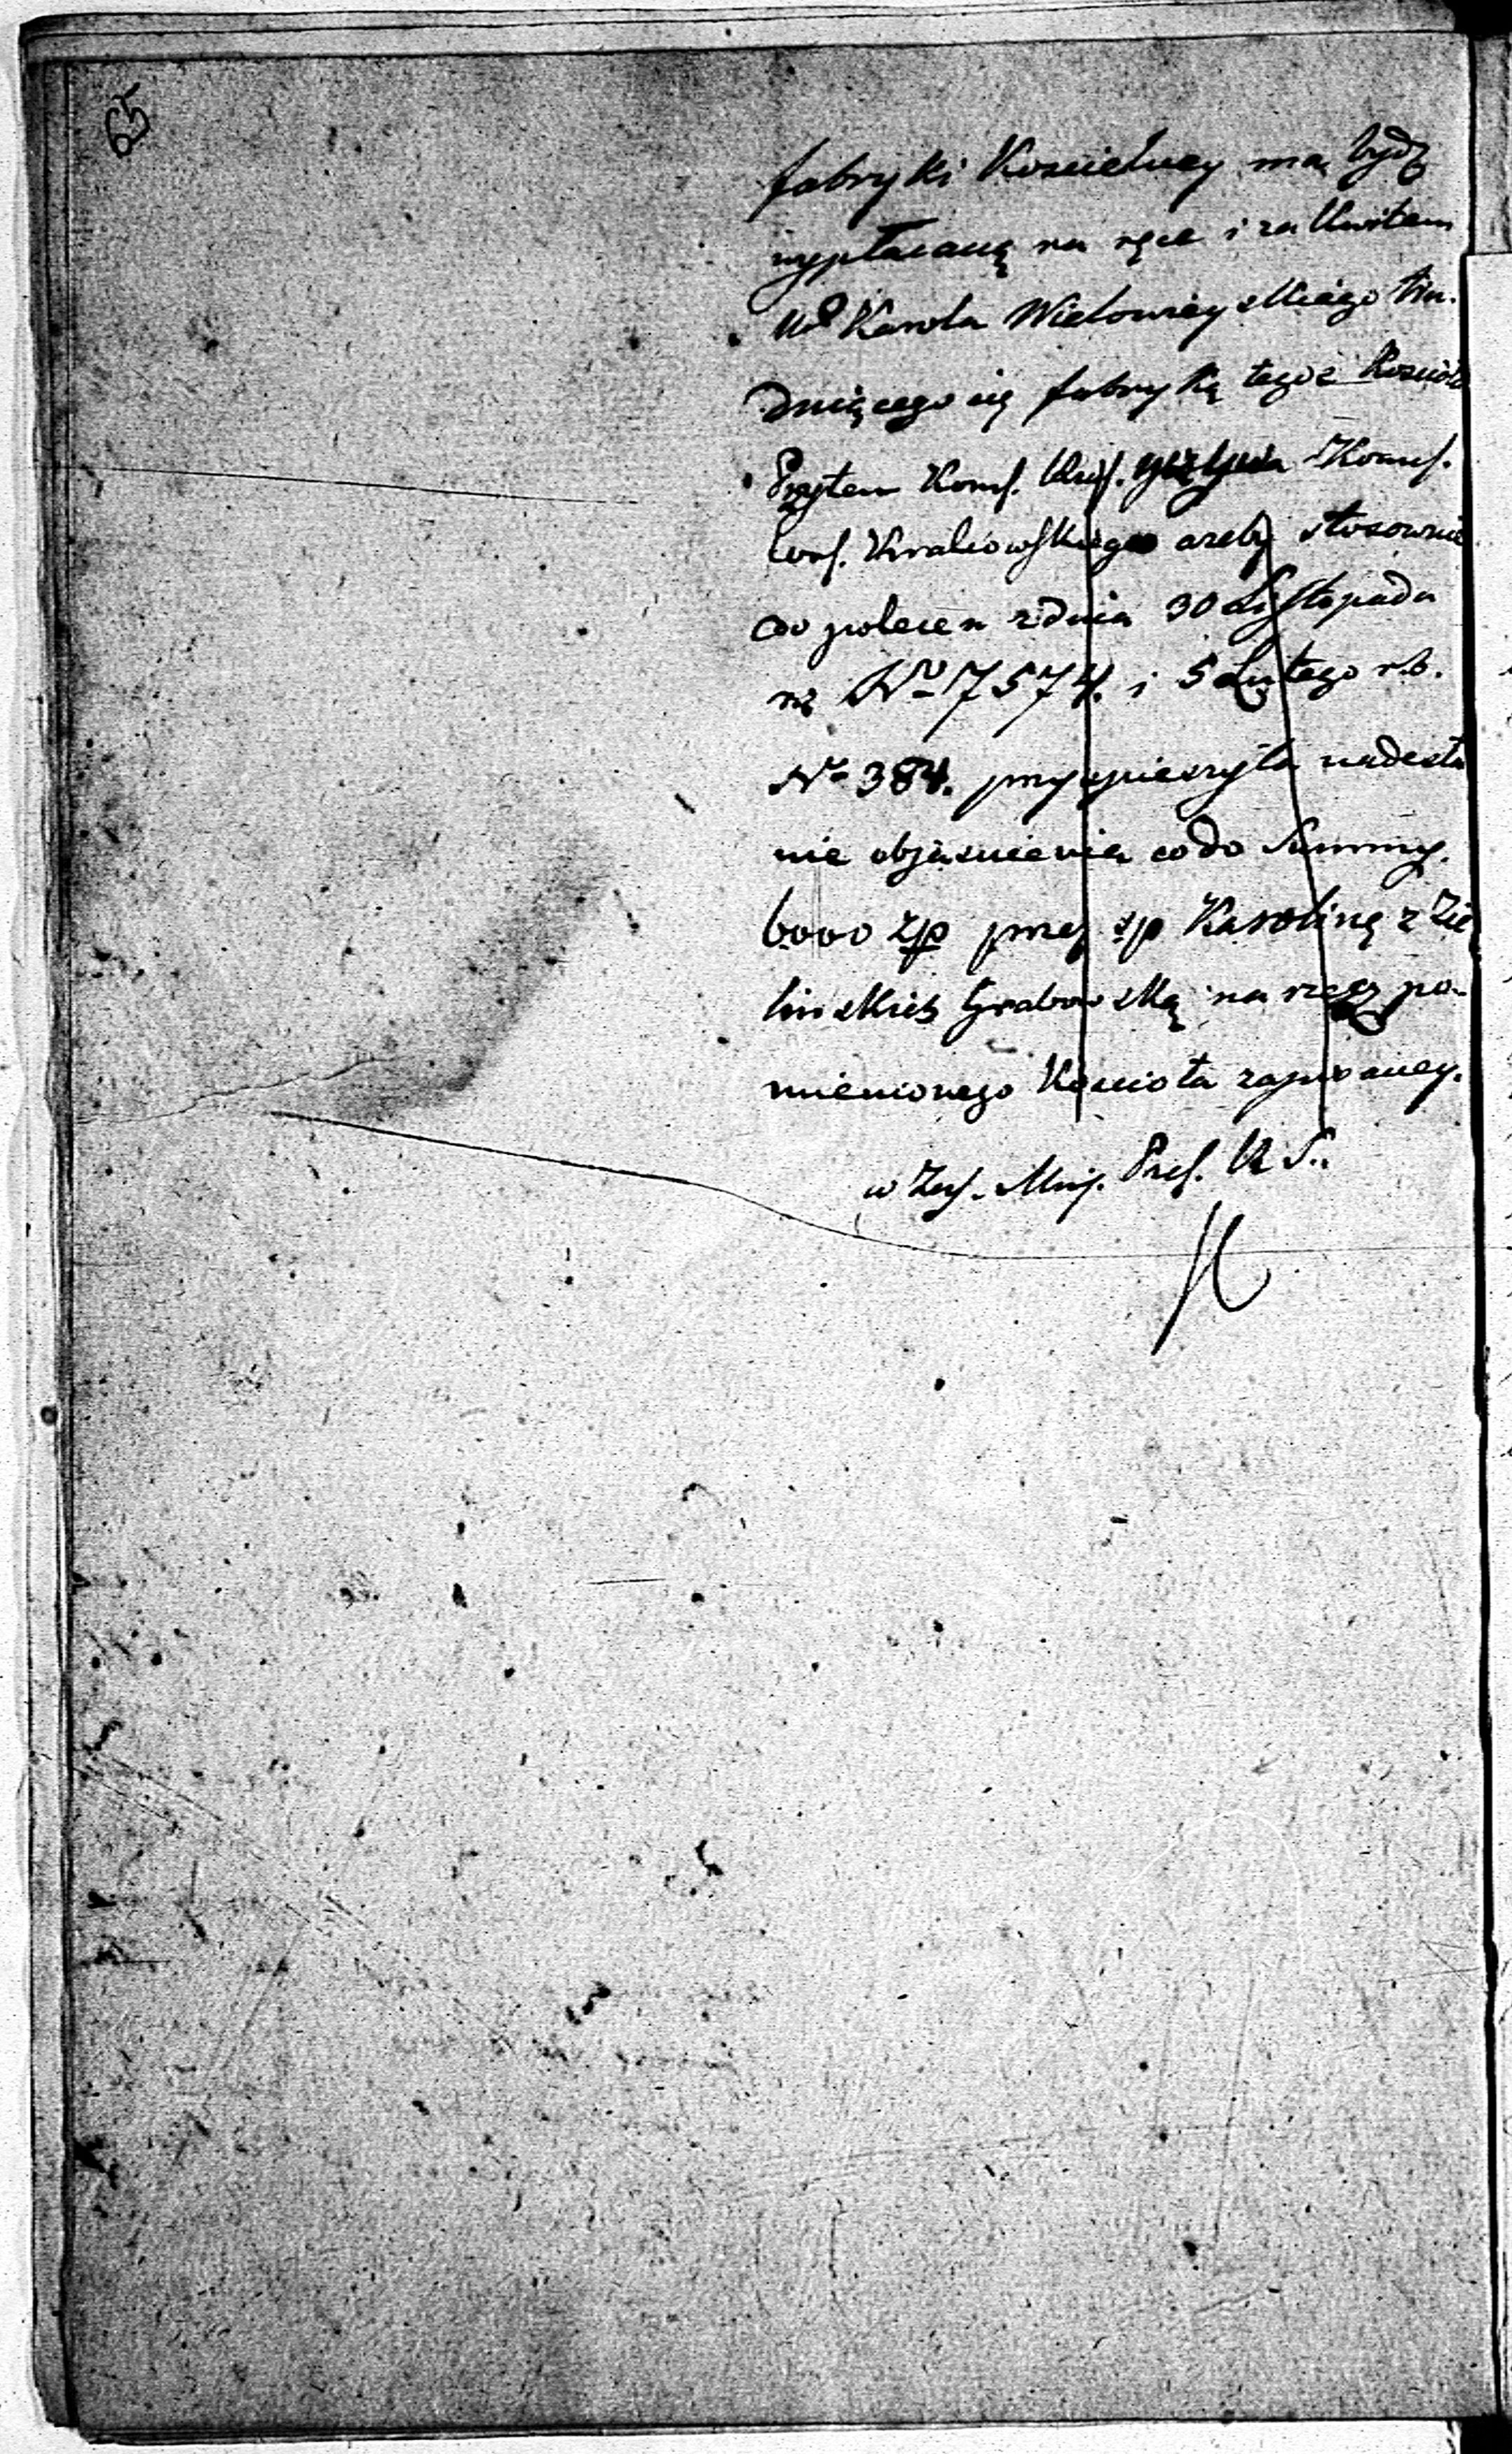 65
fabryki Koscielney ma bydź
wypłacaną na ręce i za kwitem
WP Karola Wielowieyskiego tru-
dniącego się fabryką tegoż Kościoła
Przytem Kom. Rząd. wzywa Kom.
Woj. Krakowskiego ażeby stosownie
do poleceń z dnia 30 Listopada
No 7574. i 5 Lutego r.b.
No 384. przyspieszyła nadesła
nie objasnienia co do Summy
6000 zp przez sp Karolinę z Zie
linskich Grabowską na rzecz po-
mienionego Kościoła zapisaney.
w Zas. Min. Prez.